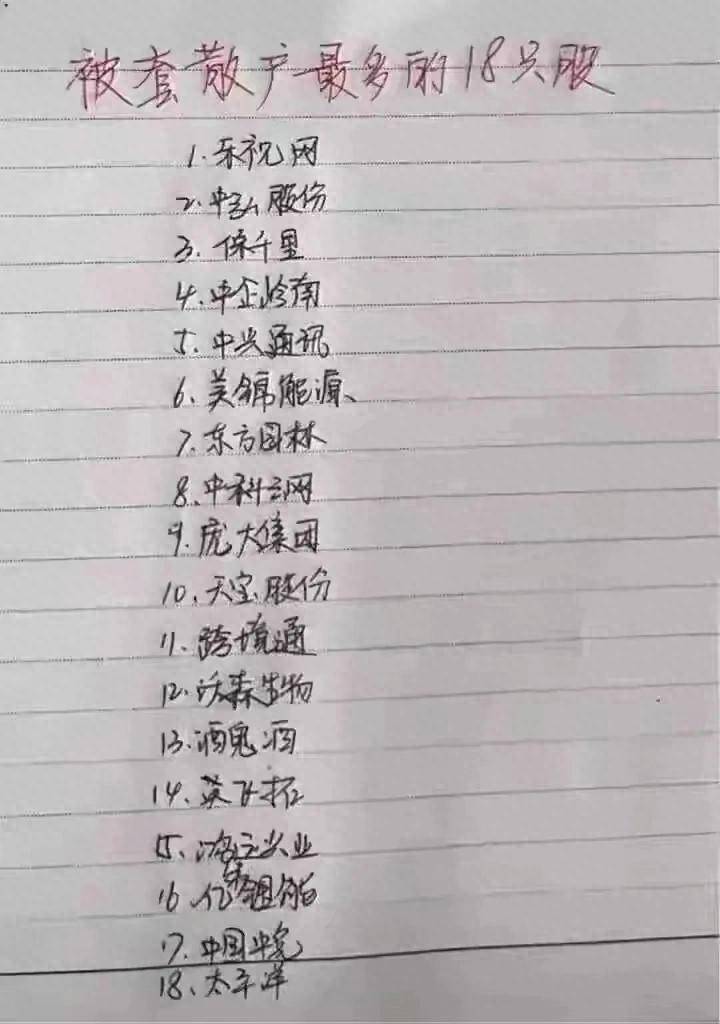 被套散户最多的18只股
1.乐视网
2.中弘股份
3.保千里
4.中企岭南
5.中兴通讯
6.美锦能源、
7.东方园林
8.中科云网
9.庞大集团
10.天宝股份
11.跨境通
12.沃森生物
13.酒鬼酒
14.英飞拓
15.鸿远兴业
16.亿
17.中国中免
18.太平洋